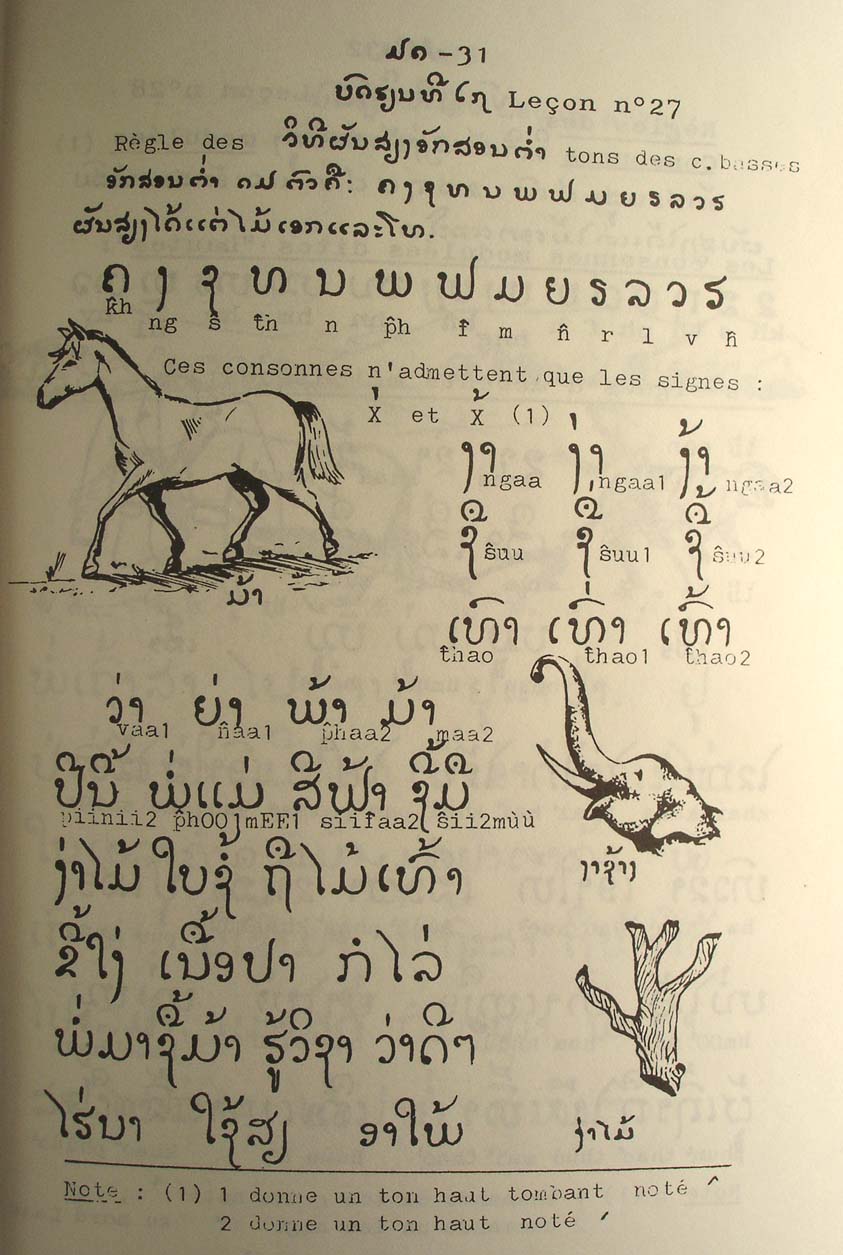 -31
ບົດຮຽນທີ ໒໗ Leçon nº27
Règle des ວິທີຜັນສຽງອັກສອນຕ່ຳ tons des c. basses
ອັກສອນຕ່ຳ ໑໓ ຕົວຄື: ຄ ງ ຊ ທ ນ ພ ຟ ມ ຍ ຣ ລ ວ ຮ
ຜັນສຽງໄດ້ແຕ່ໄມ້ເອກແລະໂທ.
ຄ ງ ຊ ທ ນ ພ ຟ ມ ຍ ຣ ລ ວ ຮ
k̂h ng ŝ t̂h n p̂h f̂ m n̂ r l v ĥ
Ces consonnes n'admettent que les signes :
X່ et X້ (1)
ງາ ງ່າ ງ້າ
ngaa ngaa1 ngaa2
ຊື ຊື່ ຊື້
ŝuu ŝuu1 ŝuu2
ມ້າ
ເທົາ ເທົ່າ ເທົ້າ
t̂hao t̂hao1 t̂hao2
ວ່າ ຍ່າ ພ້າ ມ້າ
vaa1 n̂aa1 p̂haa2 maa2
ປີນີ້ ພໍ່ແມ່ ສີຟ້າ ຊີ້ມື
piinii2 p̂hOO1mEE1 siif̂aa2 ŝii2mùù
ງ່າໄມ້ ໃບຊໍ້ ຖືໄມ້ເທົ້າ
ງາຊ້າງ
ຂີ້ໃງ່ ເນື້ອປາ ກໍໄລ່
ພໍ່ມາຊື້ມ້າ ຮູ້ວິຊາ ວ່າດີໆ
ໄຮ່ນາ ໃຊ້ສຽງ ອາໃພ້ ງ່າໄມ້
Note : (1) 1 donne un ton haut tombant noté ^
2 donne un ton haut noté ´